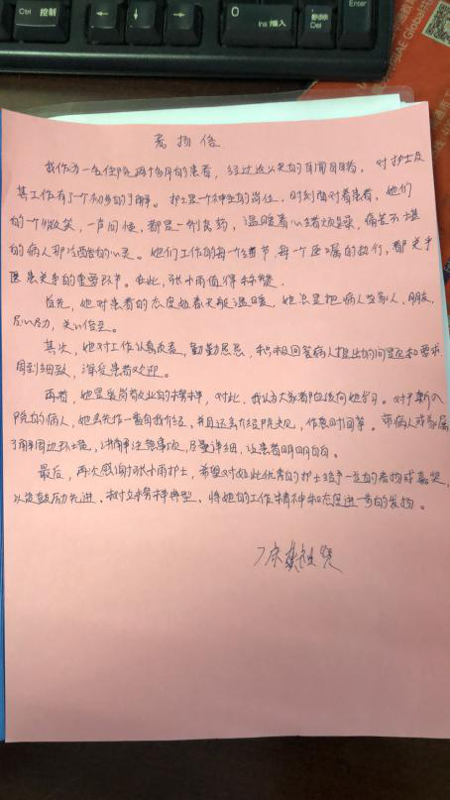 Ctrl 控制
0
Ins 插入
删除
Del
Enter
表扬信
我作为一名住院两个多月的患者，经过这么久的耳闻目睹，对护士及
其工作有了个初步的了解。护士是一个神圣的岗位，时刻面对着患者，她们
的一个微笑，一声问候，都是一剂良药，温暖着心绪烦躁，痛苦不堪
的病人那冷酷的心灵。她们工作的每一个细节，每一个医嘱的执行，都关乎
医患关系的重要环节。在此，张小雨值得称赞。
首先，她对患者的态度如春天般温暖，她总是把病人当家人，朋友，
尽心尽力，关心倍至。
其次，她对工作认真负责，勤勤恳恳，积极回答病人提出的问题和要求
周到细致，深受患者欢迎。
再者，她是爱岗敬业的榜样，对此，我认为大家都应该向她学习。对于新入
院的病人，她首先作一番自我介绍，并且还要介绍院规，作息时间等。带病人或家属
了解周边环境，讲解注意事项，尽量详细，让患者明明白白。
最后，再次感谢张小雨护士，希望对如此优秀的护士给予一定的表扬或嘉奖，
以资鼓励先进，树立榜样典型，将她的工作精神和态度进一步的发扬。